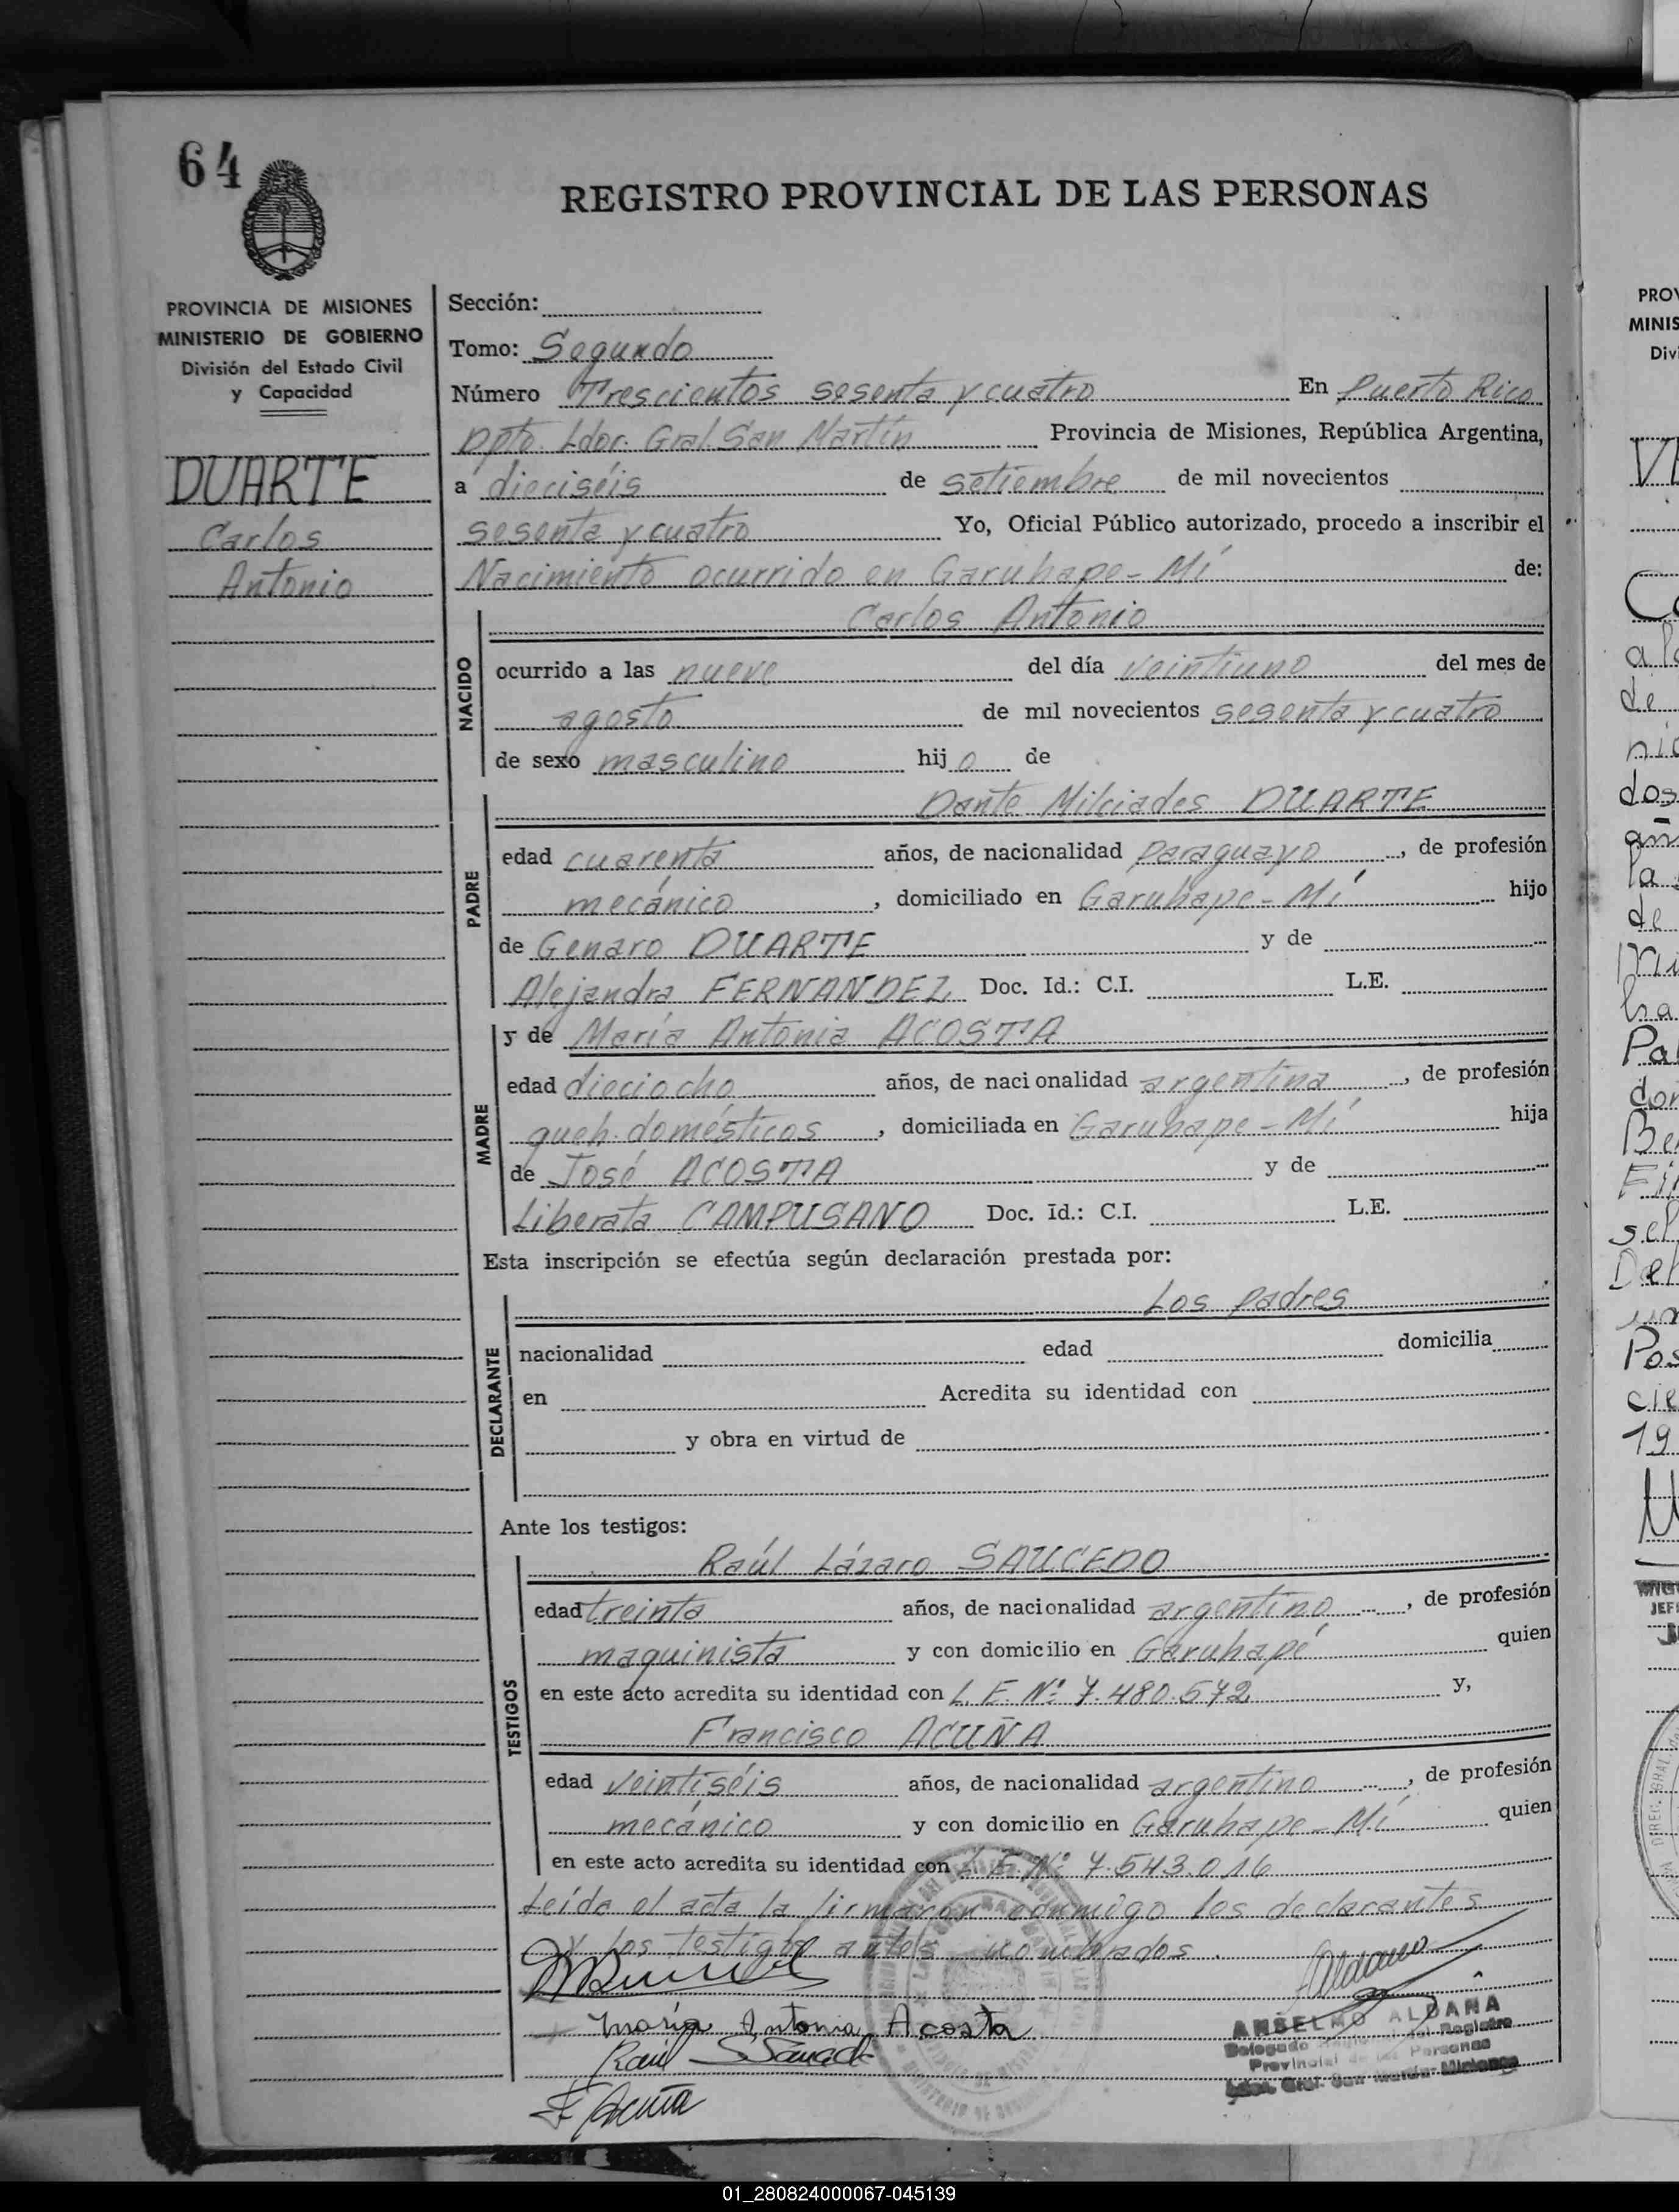 64
REGISTRO PROVINCIAL DE LAS PERSONAS
PROVINCIA DE MISIONES
MINISTERIO DE GOBIERNO
División del Estado Civil
y Capacidad
DUARTE
Carlos
Antonio
Sección:
Tomo: Segundo
Número Trescientos sesenta y cuatro En Puerto Rico
Dpto. Ldor. Gral. San Martín Provincia de Misiones, República Argentina,
a dieciséis de setiembre de mil novecientos
sesenta y cuatro Yo, Oficial Público autorizado, procedo a inscribir el
Nacimiento ocurrido en Garuhape-Mí de:
NACIDO
Carlos Antonio
ocurrido a las nueve del día veintiuno del mes de
agosto de mil novecientos sesenta y cuatro
de sexo masculino hijo de
PADRE
Dante Milciades DUARTE
edad cuarenta años, de nacionalidad paraguayo, de profesión
mecánico, domiciliado en Garuhape-Mí hijo
de Genaro DUARTE y de
Alejandra FERNANDEZ Doc. Id.: C.I. L.E.
MADRE
y de María Antonia ACOSTA
edad dieciocho años, de nacionalidad argentina, de profesión
queh. domésticos, domiciliada en Garuhape-Mí hija
de José ACOSTA y de
Liberata CAMPUSANO Doc. Id.: C.I. L.E.
Esta inscripción se efectúa según declaración prestada por:
DECLARANTE
Los padres
nacionalidad edad domicilia
en Acredita su identidad con
y obra en virtud de
Ante los testigos:
TESTIGOS
Raúl Lázaro SAUCEDO
edad treinta años, de nacionalidad argentino, de profesión
maquinista y con domicilio en Garuhapé quien
en este acto acredita su identidad con L.E. Nº 7.480.572 y,
Francisco ACUÑA
edad veintiséis años, de nacionalidad argentino, de profesión
mecánico y con domicilio en Garuhape-Mí quien
en este acto acredita su identidad con L.E. Nº 7.543.016
Leída el acta la firmaron conmigo los declarantes
y los testigos antes nombrados.
Aldana
María Antonia Acosta
Raúl Saucedo
F Acuña
ANSELMO ALDANA
Delegado del Registro
Provincial de las Personas
Ldor. Gral. San Martín-Misiones
01_280824000067-045139